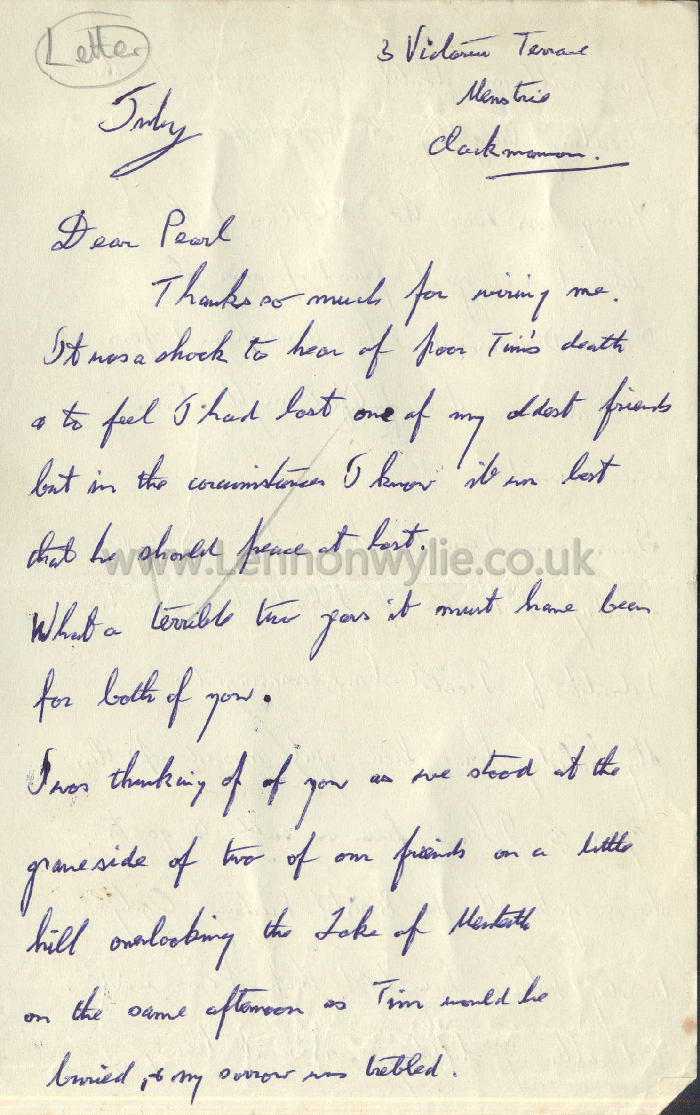 Letter
3 Victoria Terrace
Menstrie
Clackmannan.
July
Dear Pearl
Thanks so much for wiring me.
It was a shock to hear of poor Tim's death
& to feel I had lost one of my oldest friends
but in the circumstances I know it was best
that he should peace at last.
www.Lennonwylie.co.uk
What a terrible two years it must have been
for both of you.
I was thinking of of you as we stood at the
graveside of two of our friends on a little
hill overlooking the Lake of Menteith
on the same afternoon as Tim would be
buried, & my sorrow was trebled.